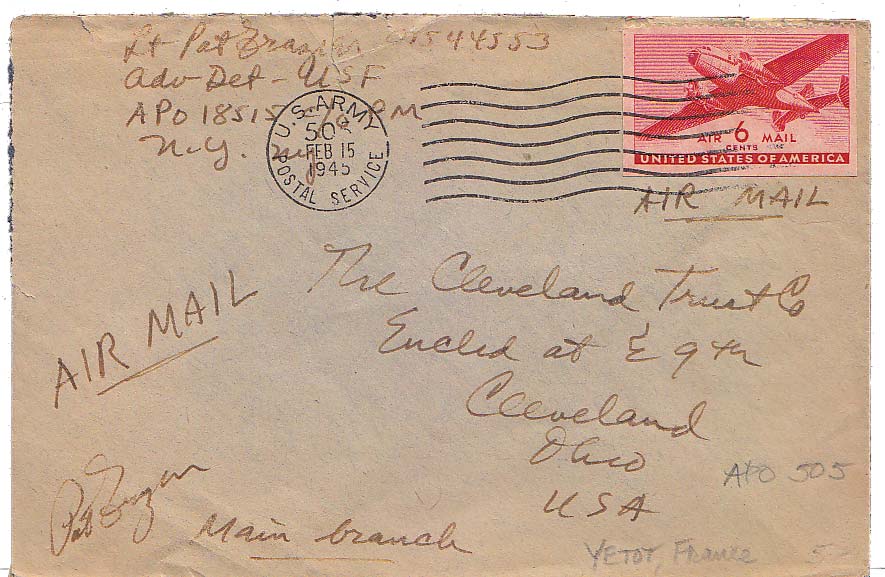 Lt Pat Frazier O1544553
Adv Det - USF
APO 18515 % PM
N.Y. N.Y.
U.S. ARMY
505
FEB 15
1945
POSTAL SERVICE
AIR 6 MAIL
CENTS
UNITED STATES OF AMERICA
AIR MAIL
AIR MAIL
The Cleveland Trust Co
Euclid at E 9th
Cleveland
Ohio
USA
APO 505
Pat
Main branch
YETOT, France 5-